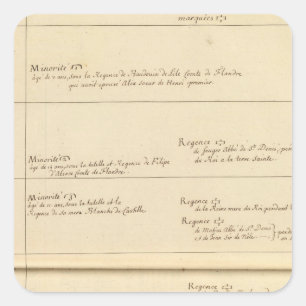 marquées
Minorité
âgé de 7 ans, sous la Regence de Baudouin de Lile Comte de Flandre
qui avoit epousé Alix Soeur de Henri premier.
Regence
de Suger Abbé de St. Denis, pen
du Roi a la terre Sainte.
Minorité
âgé de 15 ans, sous la tutelle et Regence de Filipe
d'Alsace Comte de Flandre.
Minorité
âgé de 11 ans, sous la tutelle et la
Regence de sa mere Blanche de Castille.
Regence
de la Reine mere du Roi pendant
Regence
de Abbé de St. Denis
et de Jean Sir de Néle
Regence